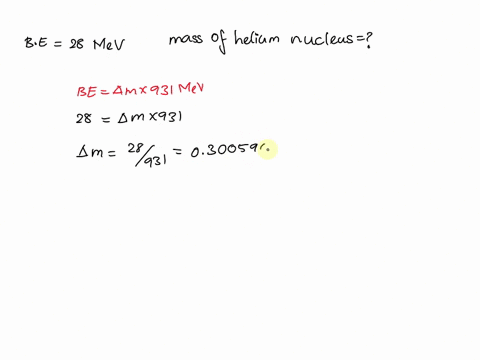 B.E = 28 MeV mass of helium nucleus=?
BE = Δm×931 MeV
28 = Δm×931
Δm = 28/931 = 0.30059